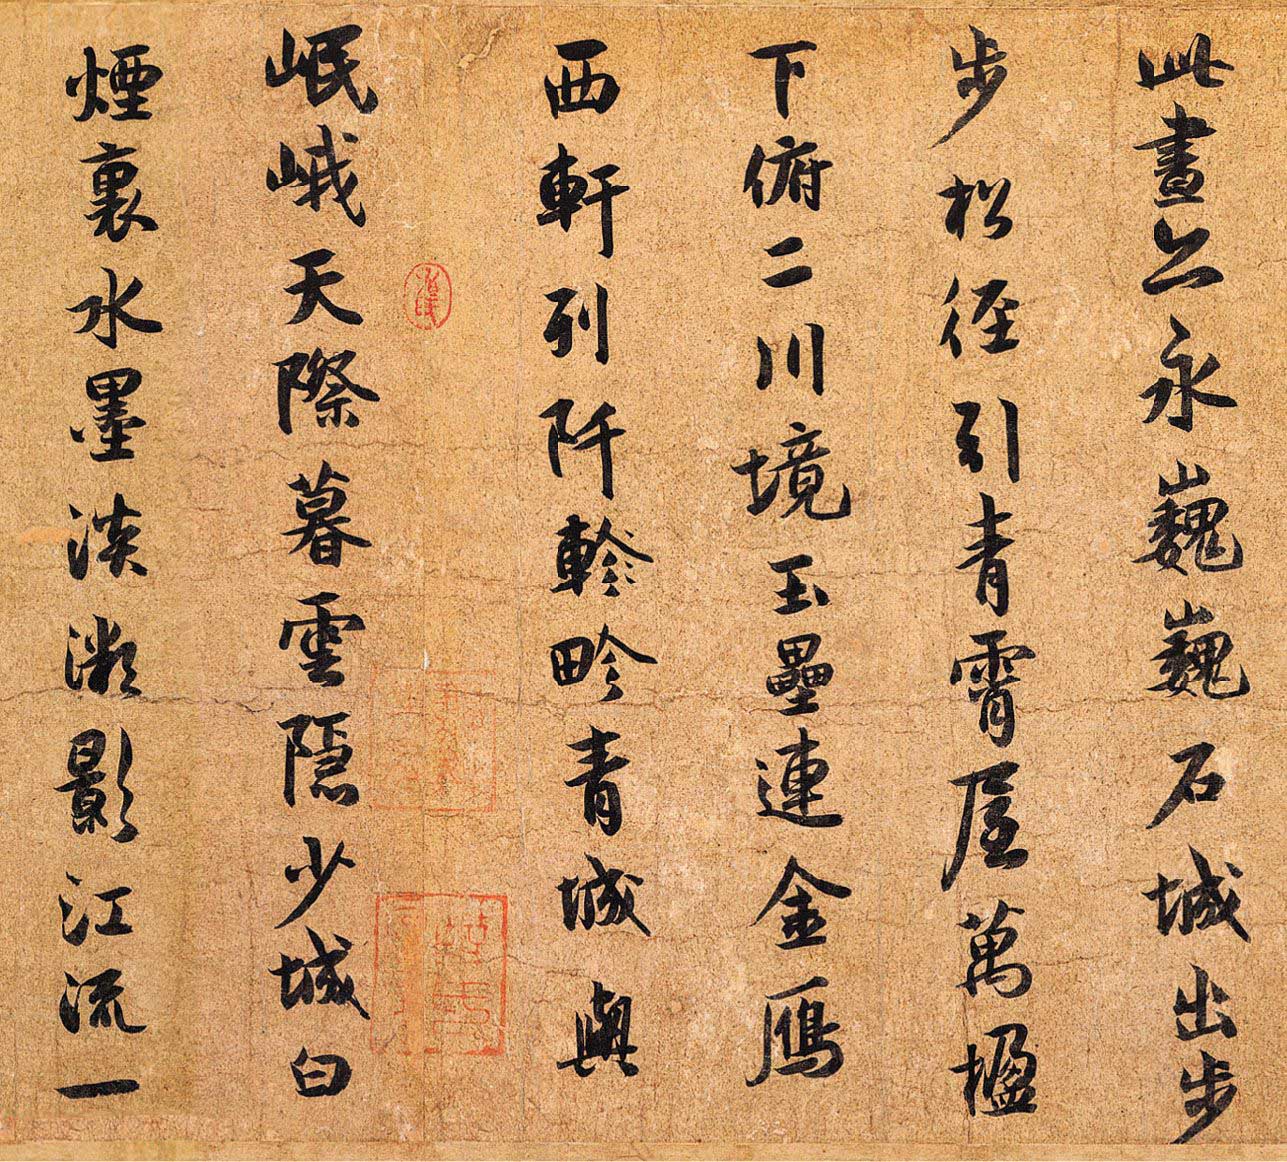 此畫永巍巍石城出步
步松徑引青霄屋萬楹
下俯二川境玉壘連金鴈
西軒列阡軫畛青城與
岷峨天際暮雲隱少城白
煙裏水墨淡影江流一